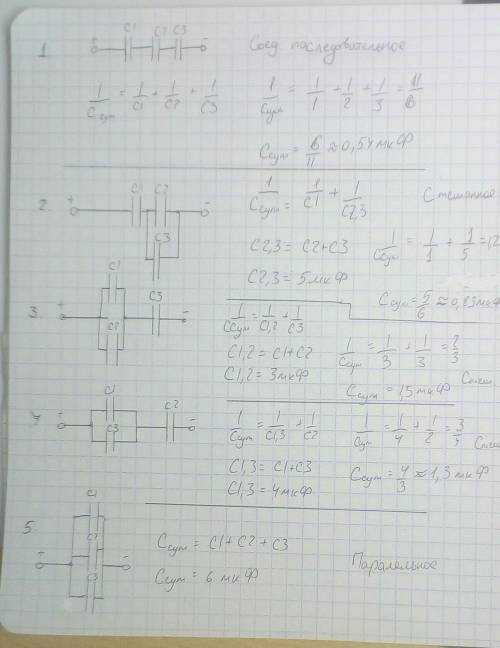 1 + C1 C2 C3 - Соед. последовательное
1/Cсум = 1/C1 + 1/C2 + 1/C3 1/Cсум = 1/1 + 1/2 + 1/3 = 11/6
Cсум = 6/11 ≈ 0,54 мкФ
2. + C1 C2 - 1/Cсум = 1/C1 + 1/C2,3 Смешанное
C3 C2,3 = C2+C3 1/Cсум = 1/1 + 1/5 = 1,2
C2,3 = 5 мкФ Cсум = 5/6 ≈ 0,83 мкФ
3. + C1 C2 C3 - 1/Cсум = 1/C1,2 + 1/C3
C1,2 = C1+C2 1/Cсум = 1/3 + 1/3 = 2/3
C1,2 = 3 мкФ Cсум = 1,5 мкФ Смеш
4 + C1 C3 C2 - 1/Cсум = 1/C1,3 + 1/C2 1/Cсум = 1/4 + 1/2 = 3/4 Смеш
C1,3 = C1+C3 Cсум = 4/3 ≈ 1,3 мкФ
C1,3 = 4 мкФ
5. + C1 C2 C3 - Cсум = C1 + C2 + C3
Cсум = 6 мкФ Паралельное